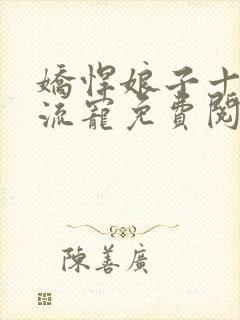 嬌悍娘子十
流寵免費閱
陳善廣